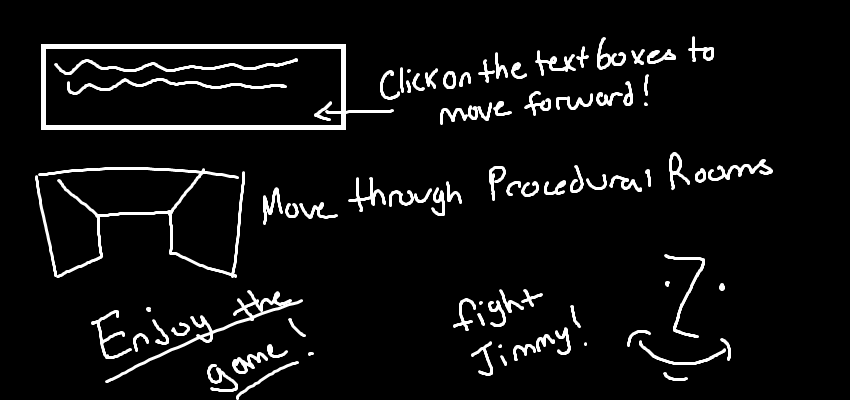 Click on the text boxes to
move forward!
Move through Procedural Rooms
Enjoy the
game!
fight
Jimmy!